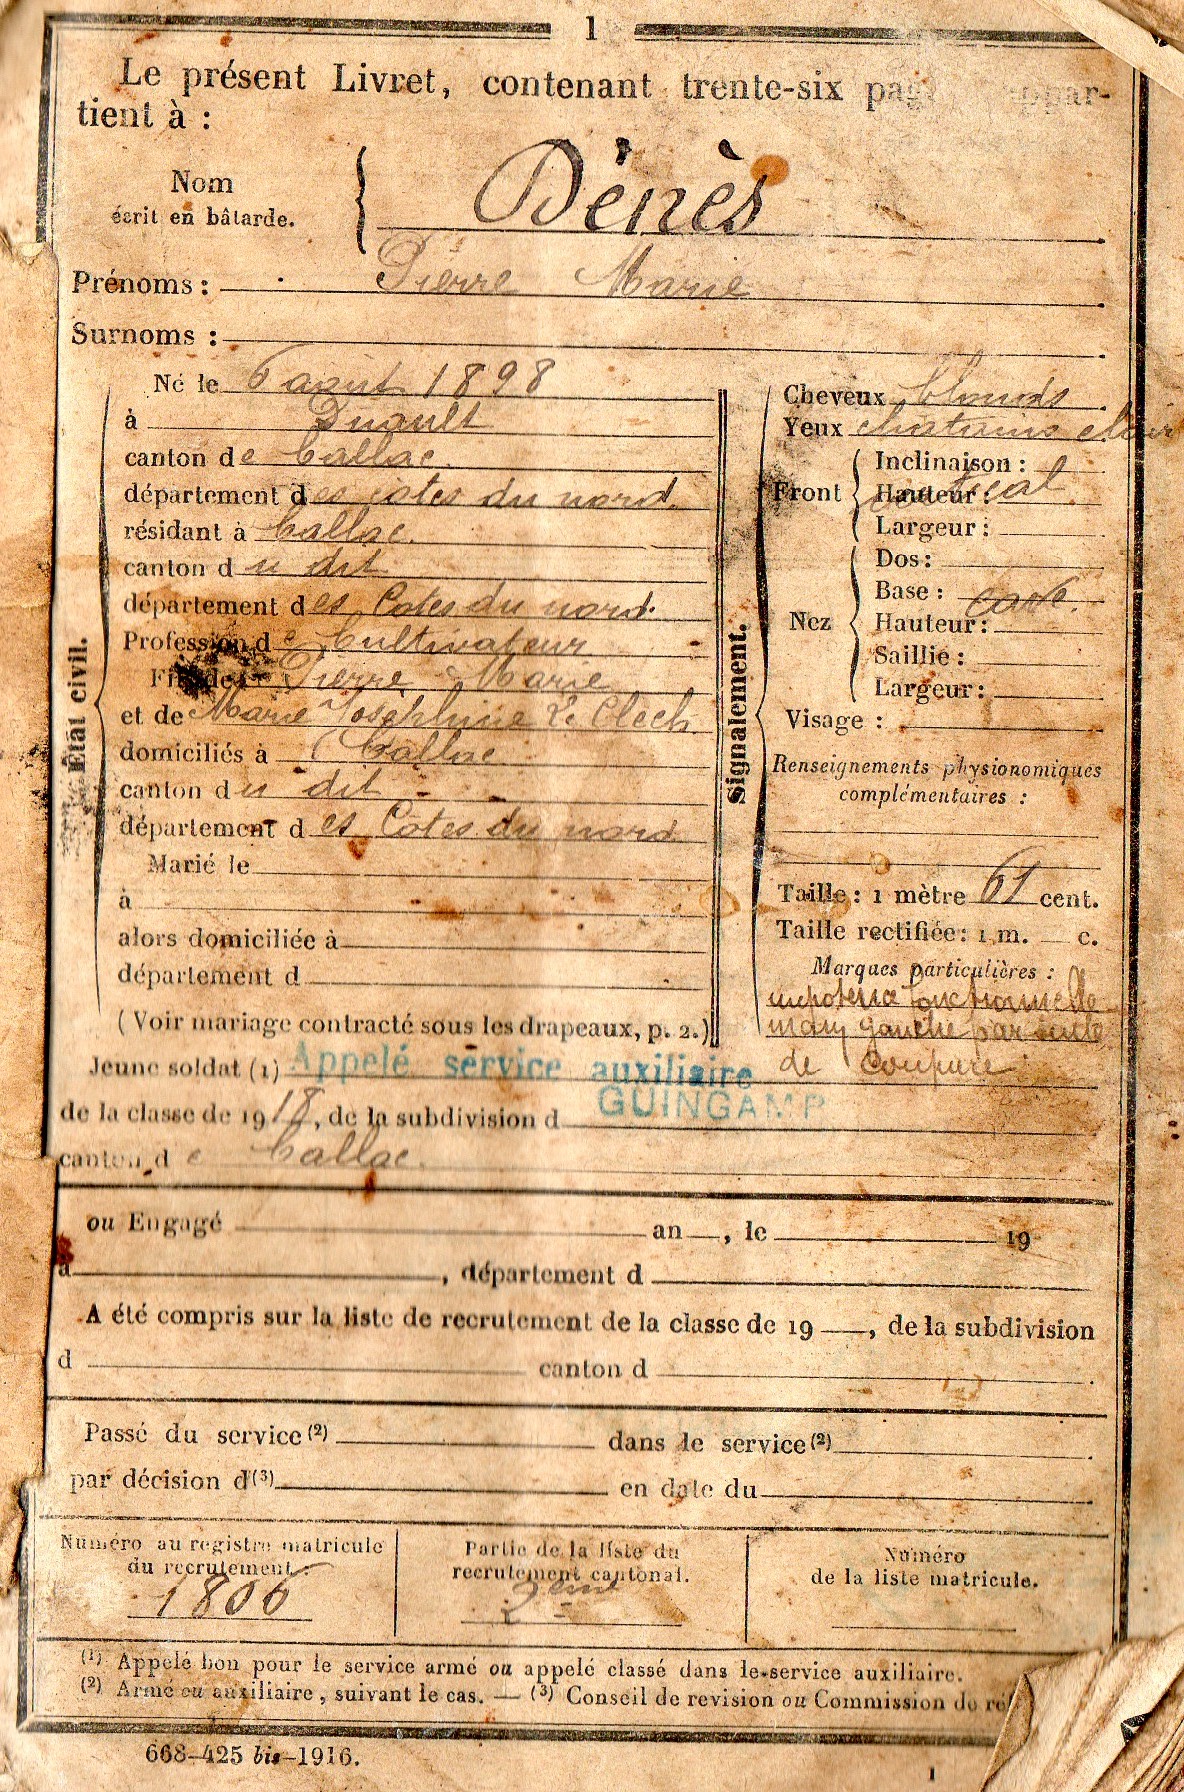 1
Le présent Livret, contenant trente-six pag appar-
tient à :
Nom
écrit en bâtarde.
Dénès
Prénoms : Pierre Marie
Surnoms :
État civil.
Né le 6 août 1898
à Duault
canton de Callac
département des cotes du nord
résidant à Callac.
canton du dit
département des Cotes du nord.
Profession de Cultivateur
Fils de Pierre Marie
et de Marie Joséphine Le Clech
domiciliés à Callac
canton du dit
département des Cotes du nord
Marié le
à
alors domiciliée à
département d
(Voir mariage contracté sous les drapeaux, p. 2.)
Signalement.
Cheveux blonds
Yeux chatains clair
Front
Inclinaison :
Hauteur : vertical
Largeur :
Nez
Dos :
Base : cave.
Hauteur :
Saillie :
Largeur :
Visage :
Renseignements physionomiques
complémentaires :
Taille : 1 mètre 61 cent.
Taille rectifiée : 1 m. c.
Marques particulières :
impotence fonctionnelle
main gauche par suite
de coupure
Jeune soldat (1) Appelé service auxiliaire
GUINGAMP
de la classe de 1918, de la subdivision d
canton de Callac.
ou Engagé an , le 19
à , département d
A été compris sur la liste de recrutement de la classe de 19 , de la subdivision
d canton d
Passé du service (2) dans le service (2)
par décision d (3) en date du
Numéro au registre matricule
du recrutement.
1806
Partie de la liste du
recrutement cantonal.
2ème
Numéro
de la liste matricule.
(1) Appelé bon pour le service armé ou appelé classé dans le service auxiliaire.
(2) Armé ou auxiliaire, suivant le cas. — (3) Conseil de revision ou Commission de ré
668-425 bis-1916.
1